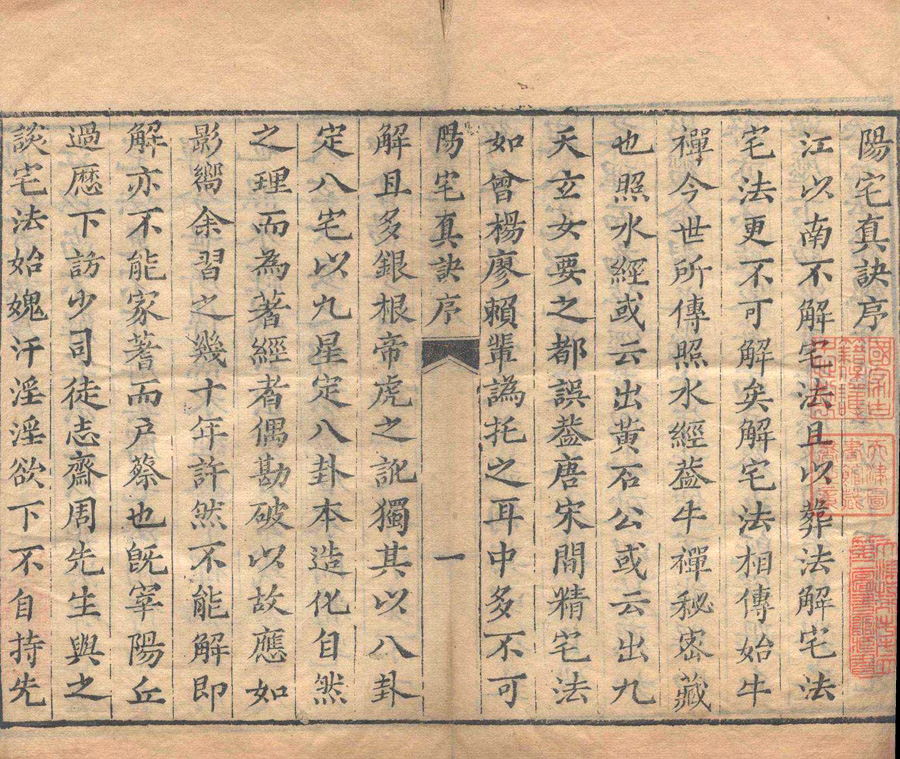 陽宅真訣序
江以南不解宅法且以葬法解宅法
宅法更不可解矣解宅法相傳始牛
禪今世所傳照水經葢牛禪秘宻藏
也照水經或云出黃石公或云出九
天玄女要之都誤葢唐宋間精宅法
如曾楊廖賴輩譌托之耳中多不可
陽宅真訣序
一
解且多銀根帝虎之訛獨其以八卦
定八宅以九星定八卦本造化自然
之理而為著經者偶勘破以故應如
影嚮余習之幾十年許然不能解即
解亦不能家蓍而戶蔡也旣宰陽丘
過歷下訪少司徒志齋周先生與之
談宅法始媿汗淫淫欲下不自持先